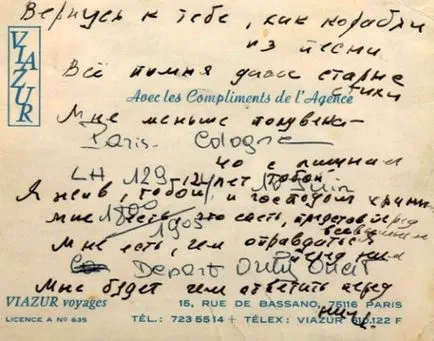 Вернусь к тебе, как корабли
из песни
Всё помня даже старые
стихи
VIAZUR
Avec les Compliments de l'Agence
Мне меньше полувека –
Paris - Cologne
с лишним
LH 129 12 лет тобой Juin
Я жив, тобой и господом храним
1800
Мне есть, что спеть, представ перед
всевышним
1905
Мне есть, чем оправдаться
перед ним
Depart Orly Ouest
Мне будет чем ответить перед
ним.
VIAZUR voyages
15, RUE DE BASSANO, 75116 PARIS
LICENCE A N° 635
TÉL.: 723 55 14 + TÉLEX: VIAZUR 610.122 F